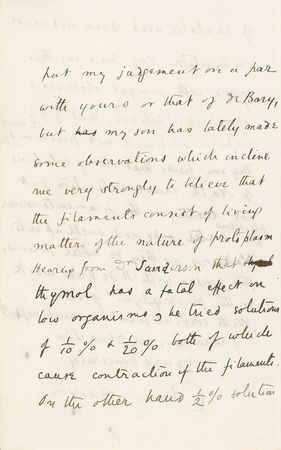 put my judgement on a par
with yours or that of de Bary,
but has my son has lately made
some observations which incline
me very strongly to believe that
the filaments consist of living
matter of the nature of protoplasm
Hearing from Dr Sanderson that
thymol has a fatal effect on
low organisms, he tried solutions
of 1/10 % & 1/20 % both of which
cause contraction of the filaments.
On the other hand 1/2 % solution